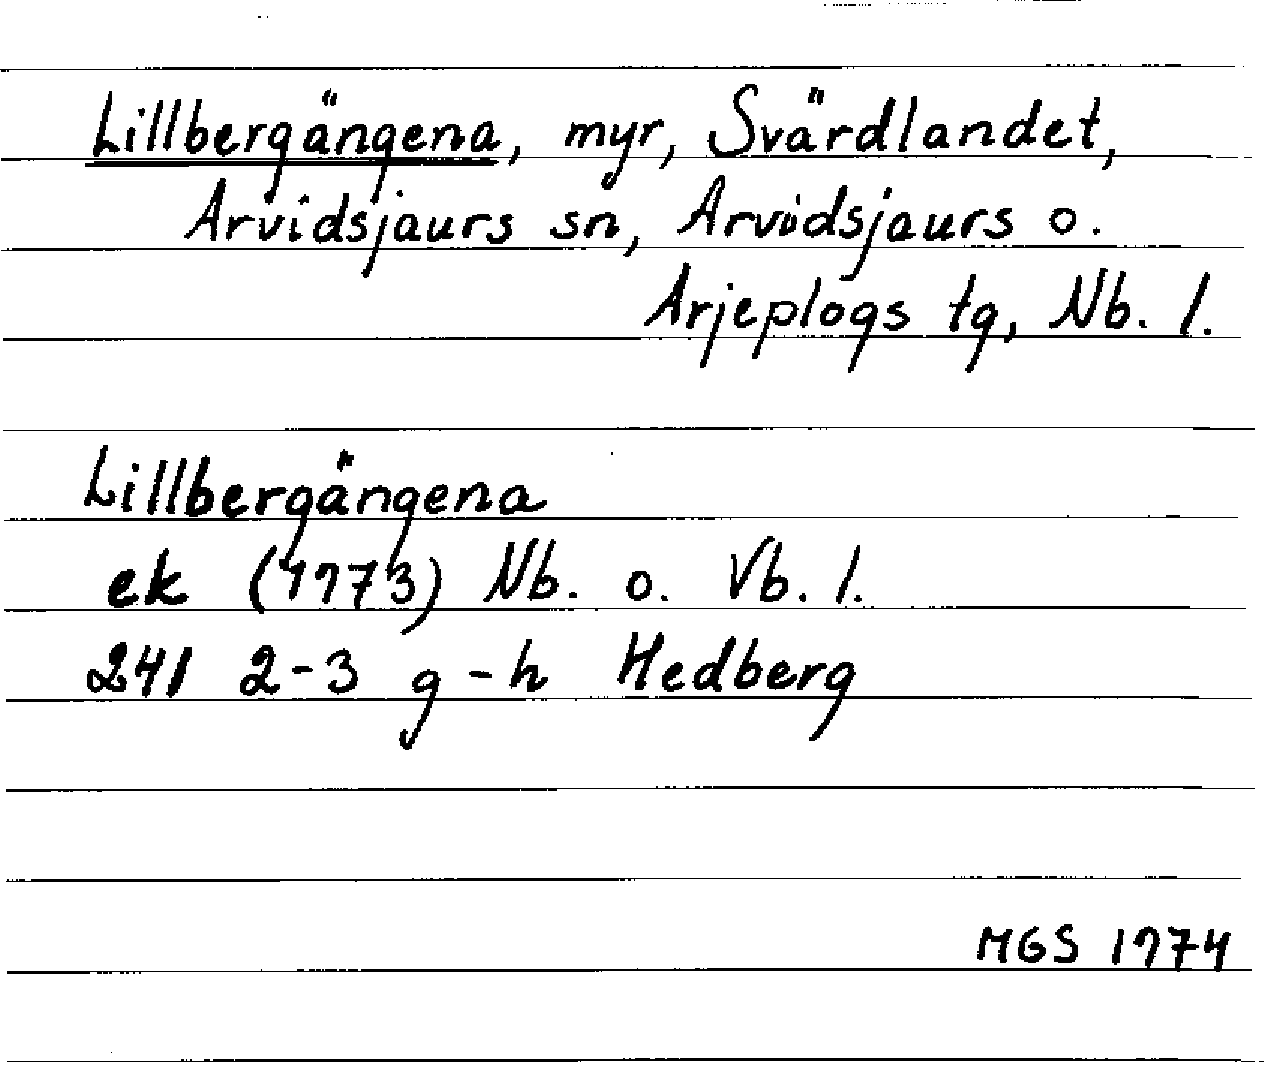 Lillbergängena, myr, Svärdlandet,
Arvidsjaurs sn, Arvidsjaurs o.
Arjeplogs tg, Nb. l.
Lillbergängena
ek (1973) Nb. o. Vb. l.
241 2-3 g-h Hedberg
MGS 1974